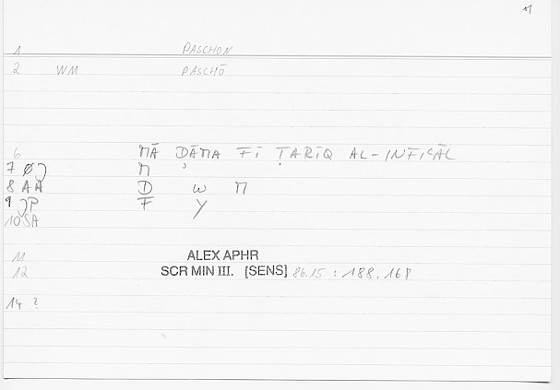 1 PASCHON
2 WM PASCHŌ
6 MĀ DĀMA FĪ ṬARĪQ AL-INFIʿĀL
7 Ø) M ʾ
8 AA D W M
9 )P F Y
10 SA
11 ALEX APHR
12 SCR MIN III. [SENS] 86.15 : 188, 167
14 ?